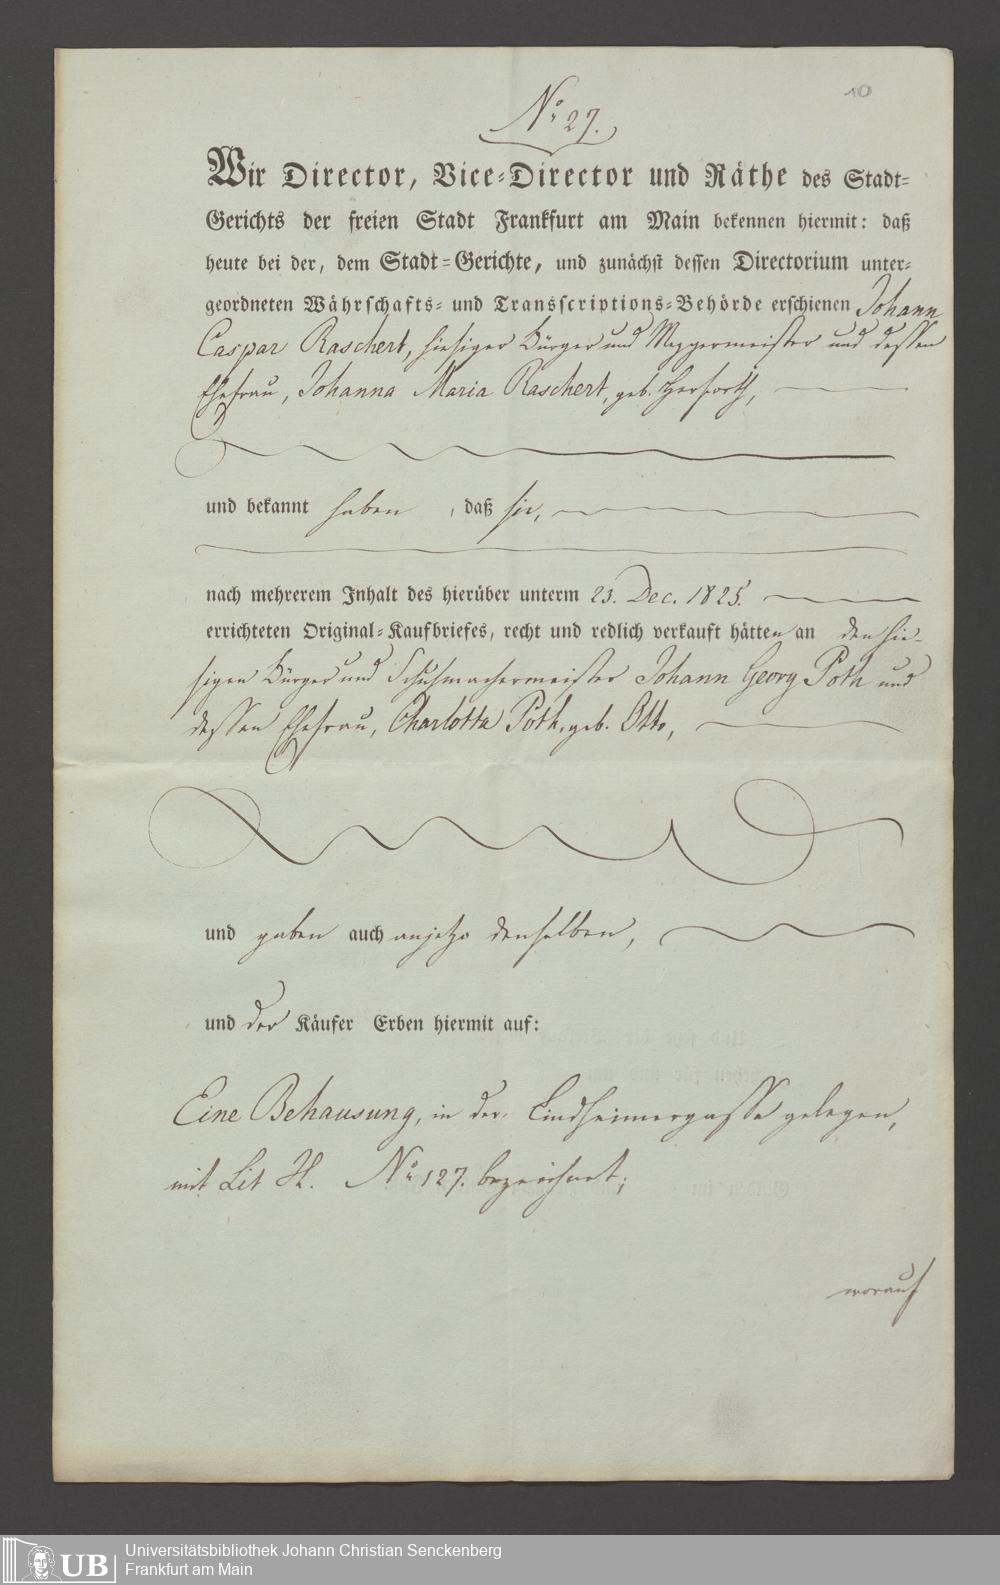 10
No. 27.
Wir Director, Vice-Director und Räthe des Stadt-
Gerichts der freien Stadt Frankfurt am Main bekennen hiermit: daß
heute bei der, dem Stadt-Gerichte, und zunächst dessen Directorium unter-
geordneten Währschafts- und Transscriptions-Behörde erschienen Johann
Caspar Raschert, hiesiger Bürger und Mezgermeister und dessen
Ehefrau, Johanna Maria Raschert, geb. Herforth,
und bekannt haben, daß sie,
nach mehrerem Inhalt des hierüber unterm 23. Dec. 1825.
errichteten Original-Kaufbriefes, recht und redlich verkauft hätten an den hie-
sigen Bürger und Schuhmachermeister Johann Georg Poth und
dessen Ehefrau, Charlotta Poth, geb. Otto,
und gaben auch anjetzo denselben,
und der Käufer Erben hiermit auf:
Eine Behausung, in der Lindheimergasse gelegen,
mit Lit H. No. 127. bezeichnet;
worauf
UB
Universitätsbibliothek Johann Christian Senckenberg
Frankfurt am Main